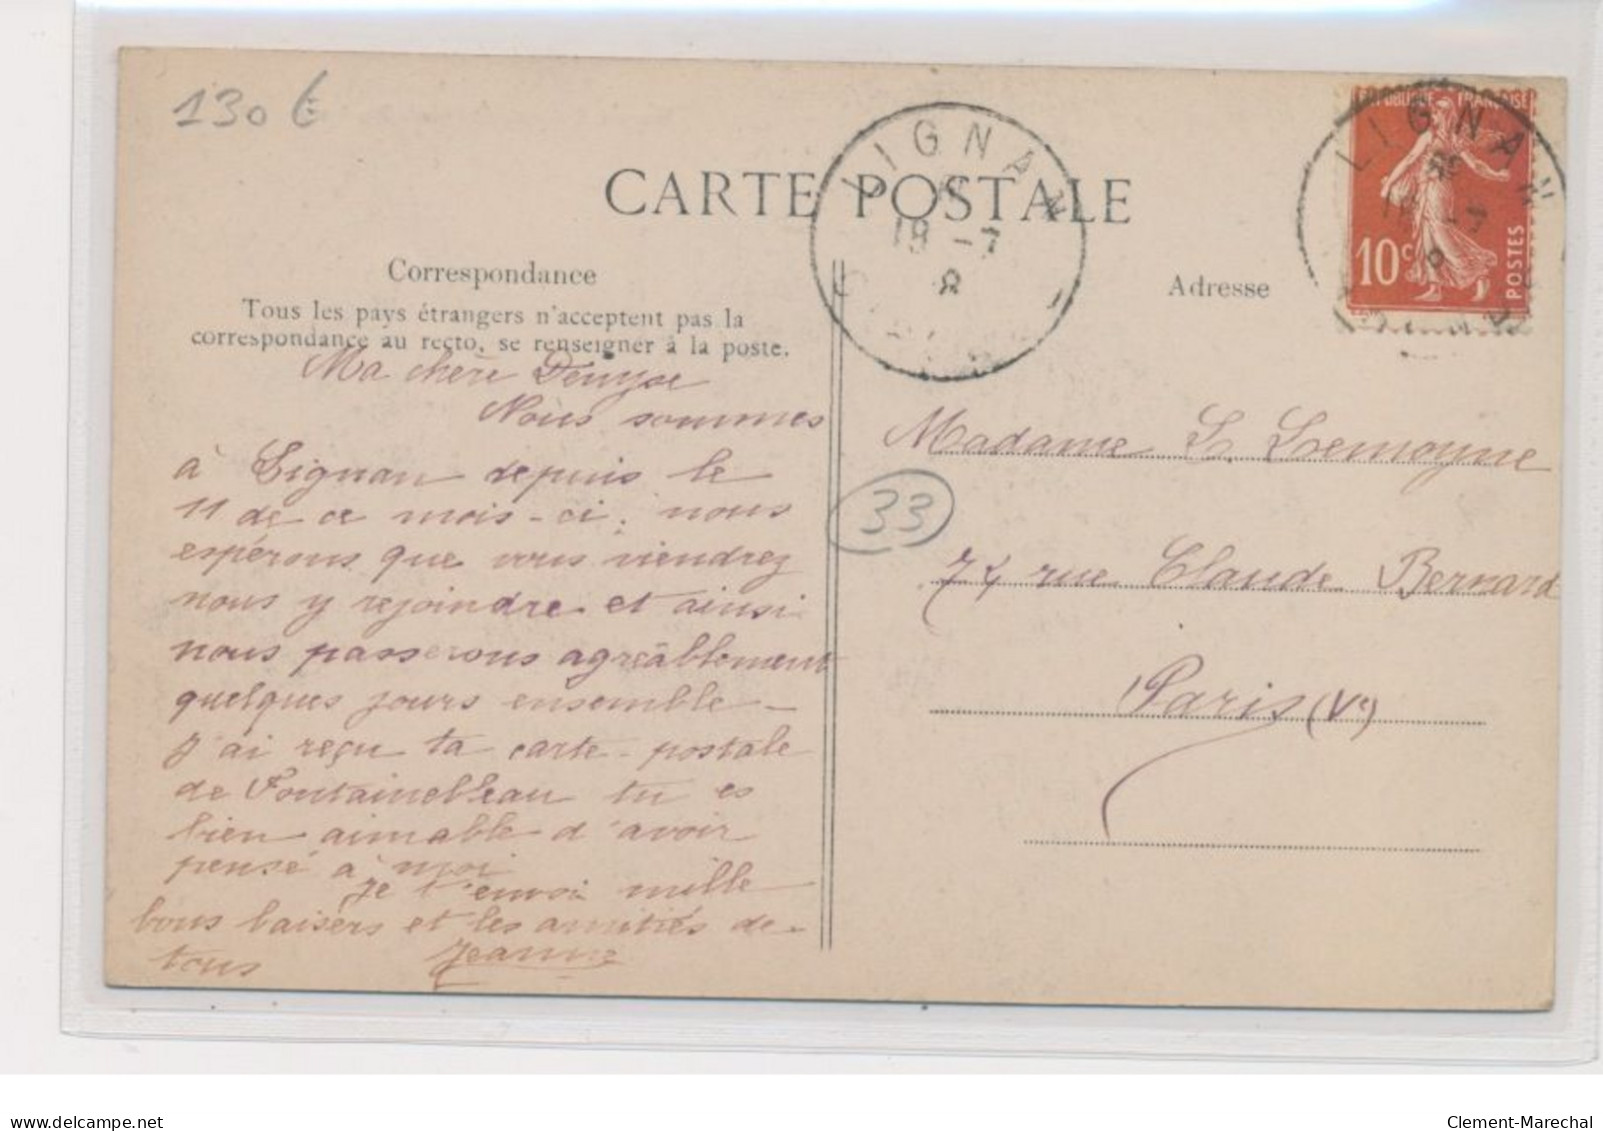 130 €
CARTE POSTALE
LIGNAN
18 -7
8
Correspondance
Tous les pays étrangers n'acceptent pas la
correspondance au recto, se renseigner à la poste.
Adresse
REPUBLIQUE FRANÇAISE
10c
POSTES
LIGNAN
Ma chère Denyse
Nous sommes
à Lignan depuis le
11 de ce mois-ci. nous
espérons que vous viendrez
nous y rejoindre et ainsi
nous passerons agréablement
quelques jours ensemble -
J'ai reçu ta carte-postale
de Fontainebleau tu es
bien aimable d'avoir
pensé à moi
Je t'envoi mille
bons baisers et les amitiés de
tous Jeanne
33
Madame L. Lemoyne
74 rue Claude Bernard
Paris (Ve)
www.delcampe.net
Clement-Marechal